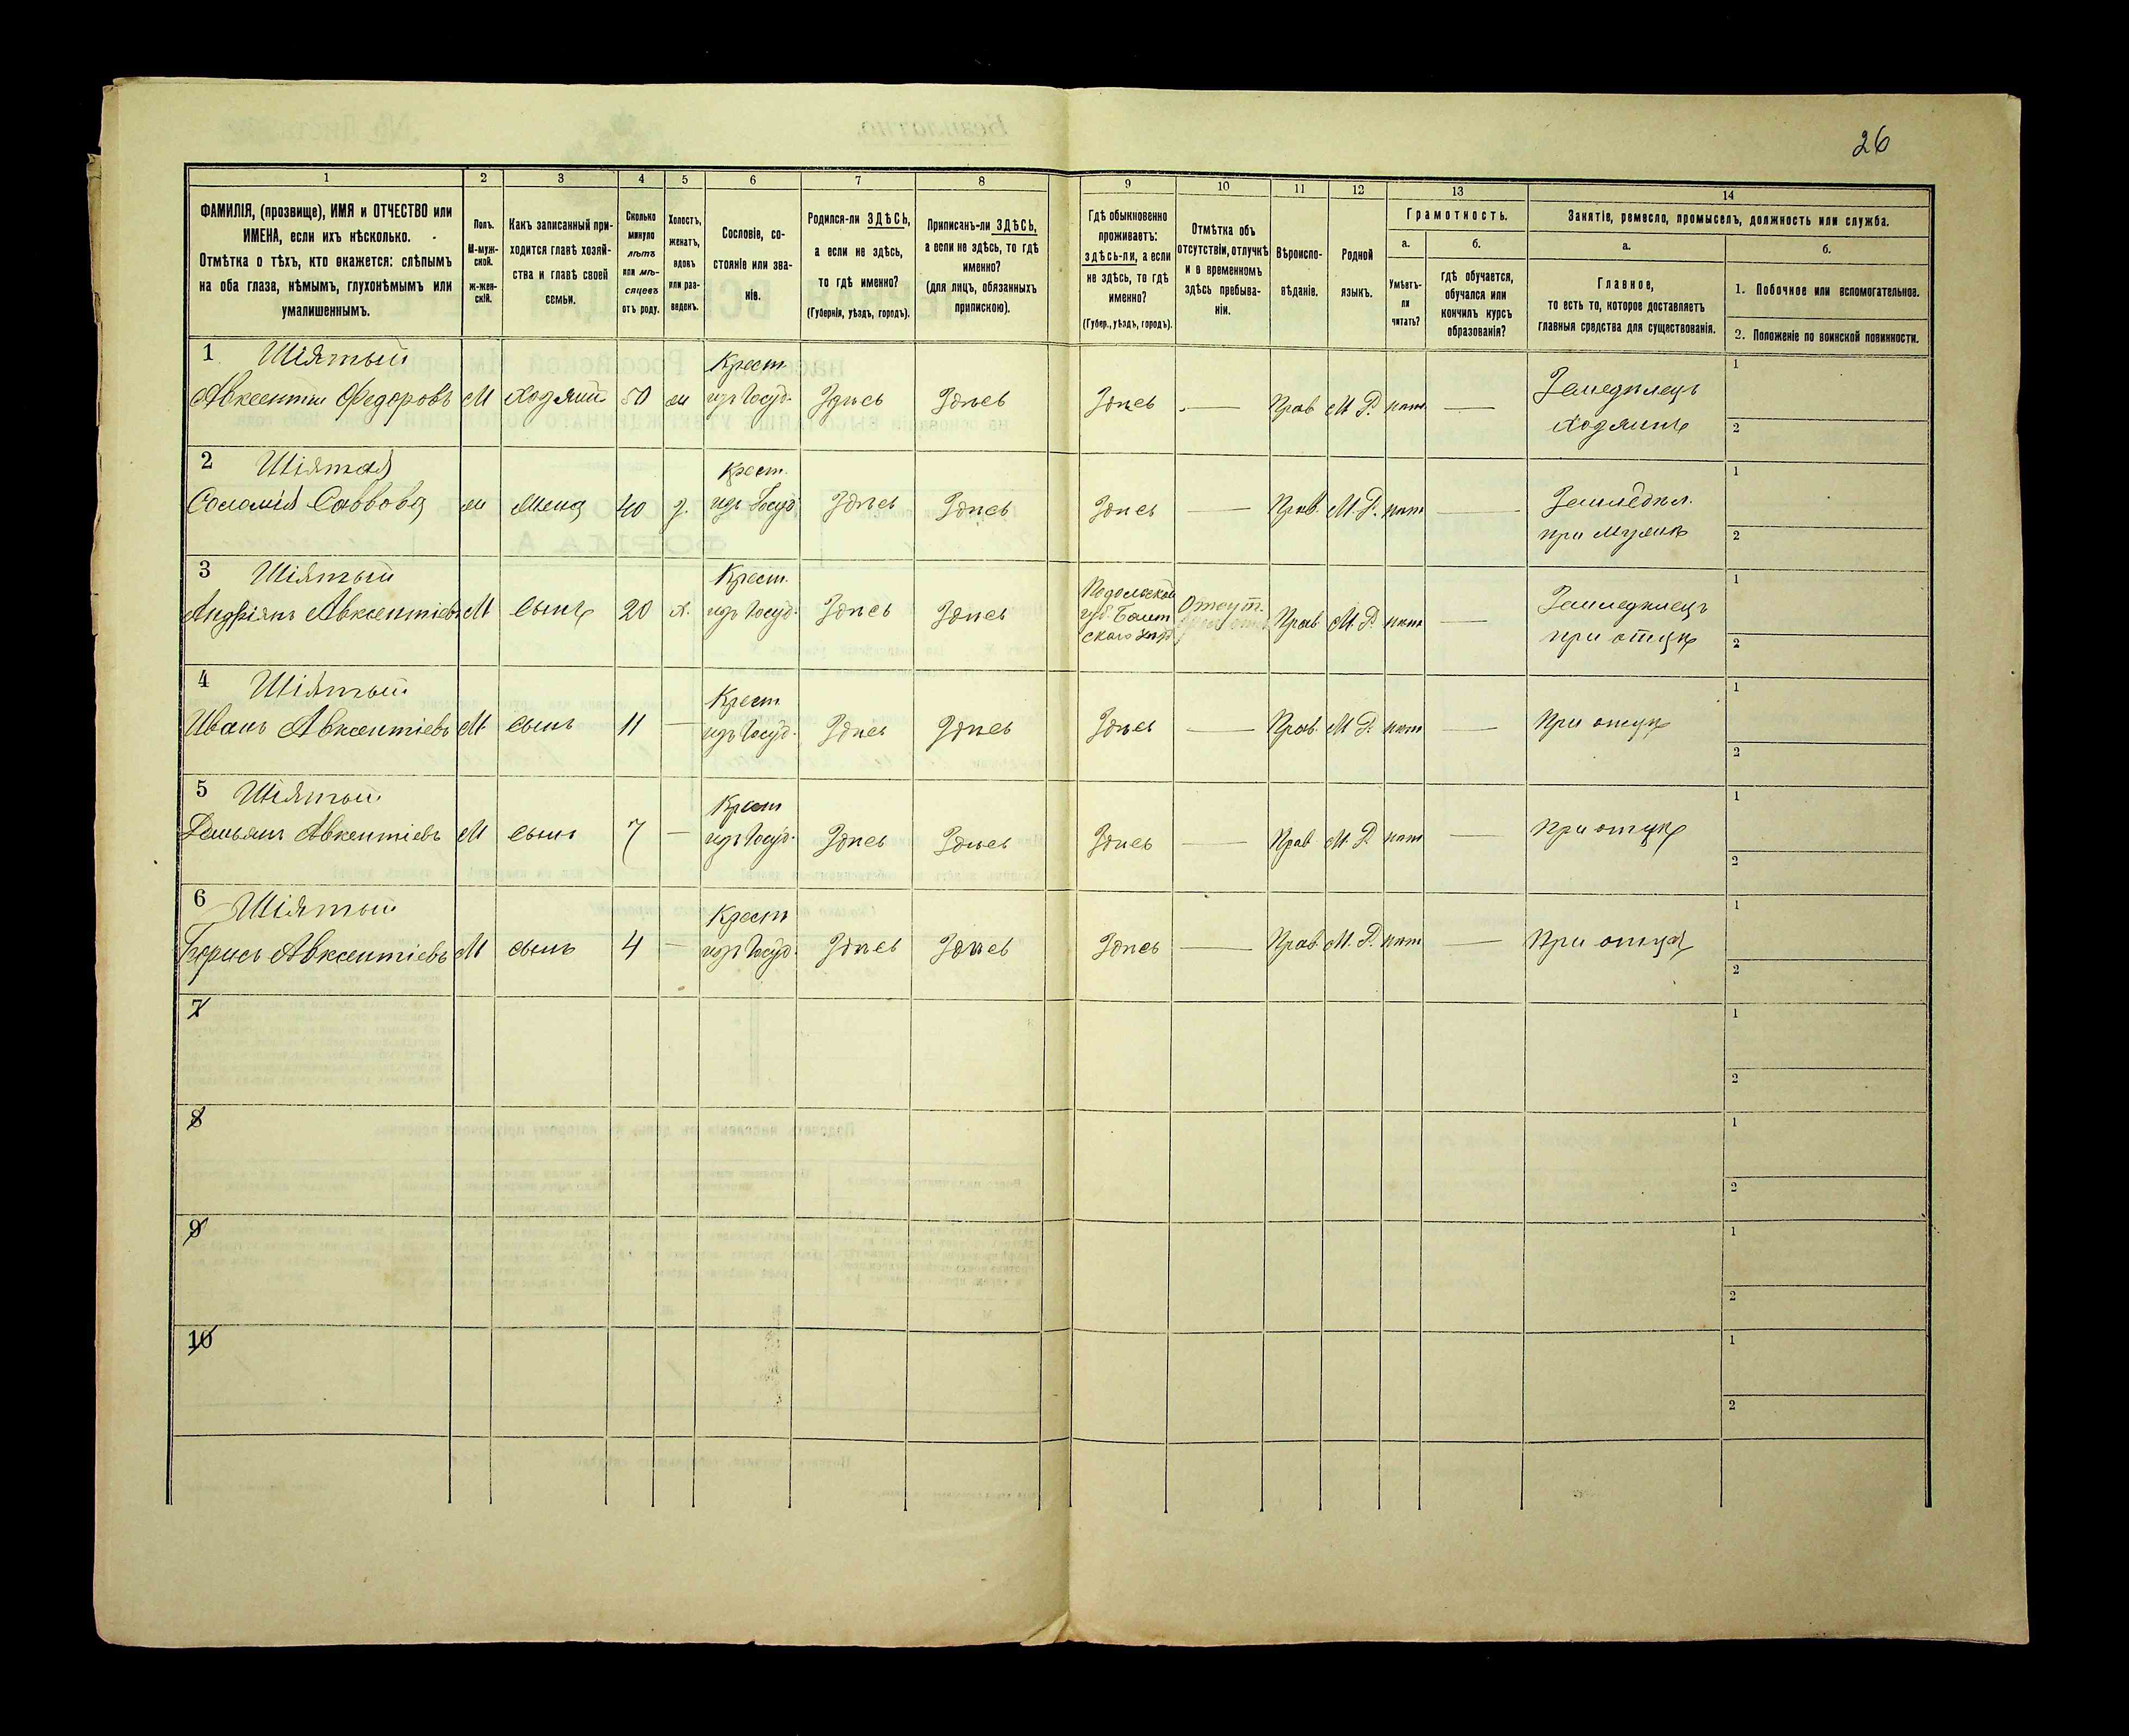 26
1 2 3 4 5 6 7 8 9 10 11 12 13 14
ФАМИЛІЯ, (прозвище), ИМЯ и ОТЧЕСТВО или
ИМЕНА, если ихъ нѣсколько.
Отмѣтка о тѣхъ, кто окажется: слѣпымъ
на оба глаза, нѣмымъ, глухонѣмымъ или
умалишеннымъ.
Полъ.
М-муж-
ской.
ж-жен-
скій.
Какъ записанный при-
ходится главѣ хозяй-
ства и главѣ своей
семьи.
Сколько
минуло
лѣтъ
или мѣ-
сяцевъ
отъ роду.
Холостъ,
женатъ,
вдовъ
или раз-
веденъ.
Сословіе, со-
стояніе или зва-
ніе.
Родился-ли ЗДѢСЬ,
а если не здѣсь,
то гдѣ именно?
(Губернія, уѣздъ, городъ).
Приписанъ-ли ЗДѢСЬ,
а если не здѣсь, то гдѣ
именно?
(для лицъ, обязанныхъ
припискою).
Гдѣ обыкновенно
проживаетъ:
здѣсь-ли, а если
не здѣсь, то гдѣ
именно?
(Губер., уѣздъ, городъ).
Отмѣтка объ
отсутствіи, отлучкѣ
и о временномъ
здѣсь пребыва-
ніи.
Вѣроиспо-
вѣданіе.
Родной
языкъ.
Грамотность.
а.
Умѣетъ-
ли
читать?
б.
гдѣ обучается,
обучался или
кончилъ курсъ
образованія?
Занятіе, ремесло, промыселъ, должность или служба.
а.
Главное,
то есть то, которое доставляетъ
главныя средства для существованія.
б.
1. Побочное или вспомогательное.
2. Положеніе по воинской повинности.
1 Шіятый Крест. 1
Авксентій Федоровъ М Хозяинъ 50 ж изъ Госуд. Здѣсь Здѣсь Здѣсь — Прав М. Р. нѣт — Земледѣлецъ
хозяинъ 2
2 Шіятая Крест. 1
Соломія Саввова ж Жена 40 з. изъ Госуд. Здѣсь Здѣсь Здѣсь — Прав. М. Р. нѣт — Земледѣл.
при мужѣ 2
3 Шіятый Крест. Подольской 1
Андріянъ Авксентіевъ М Сынъ 20 х. изъ Госуд. Здѣсь Здѣсь губ. Балт Отсут. Прав. М. Р. нѣт — Земледѣлецъ
ского уѣзд при отцѣ 2
4 Шіятый Крест 1
Иванъ Авксентіевъ М. сынъ 11 — изъ Госуд. Здѣсь Здѣсь Здѣсь — Прав. М. Р. нѣт — При отцѣ
2
5 Шіятый Крест 1
Демьянъ Авксентіевъ М сынъ 7 — изъ Госуд. Здѣсь Здѣсь Здѣсь — Прав М. Р. нѣт — При отцѣ
2
6 Шіятый Крест 1
Борисъ Авксентіевъ М сынъ 4 — изъ Госуд. Здѣсь Здѣсь Здѣсь — Прав. М. Р. нѣт — При отцѣ
2
7 1
2
8 1
2
9 1
2
10 1
2